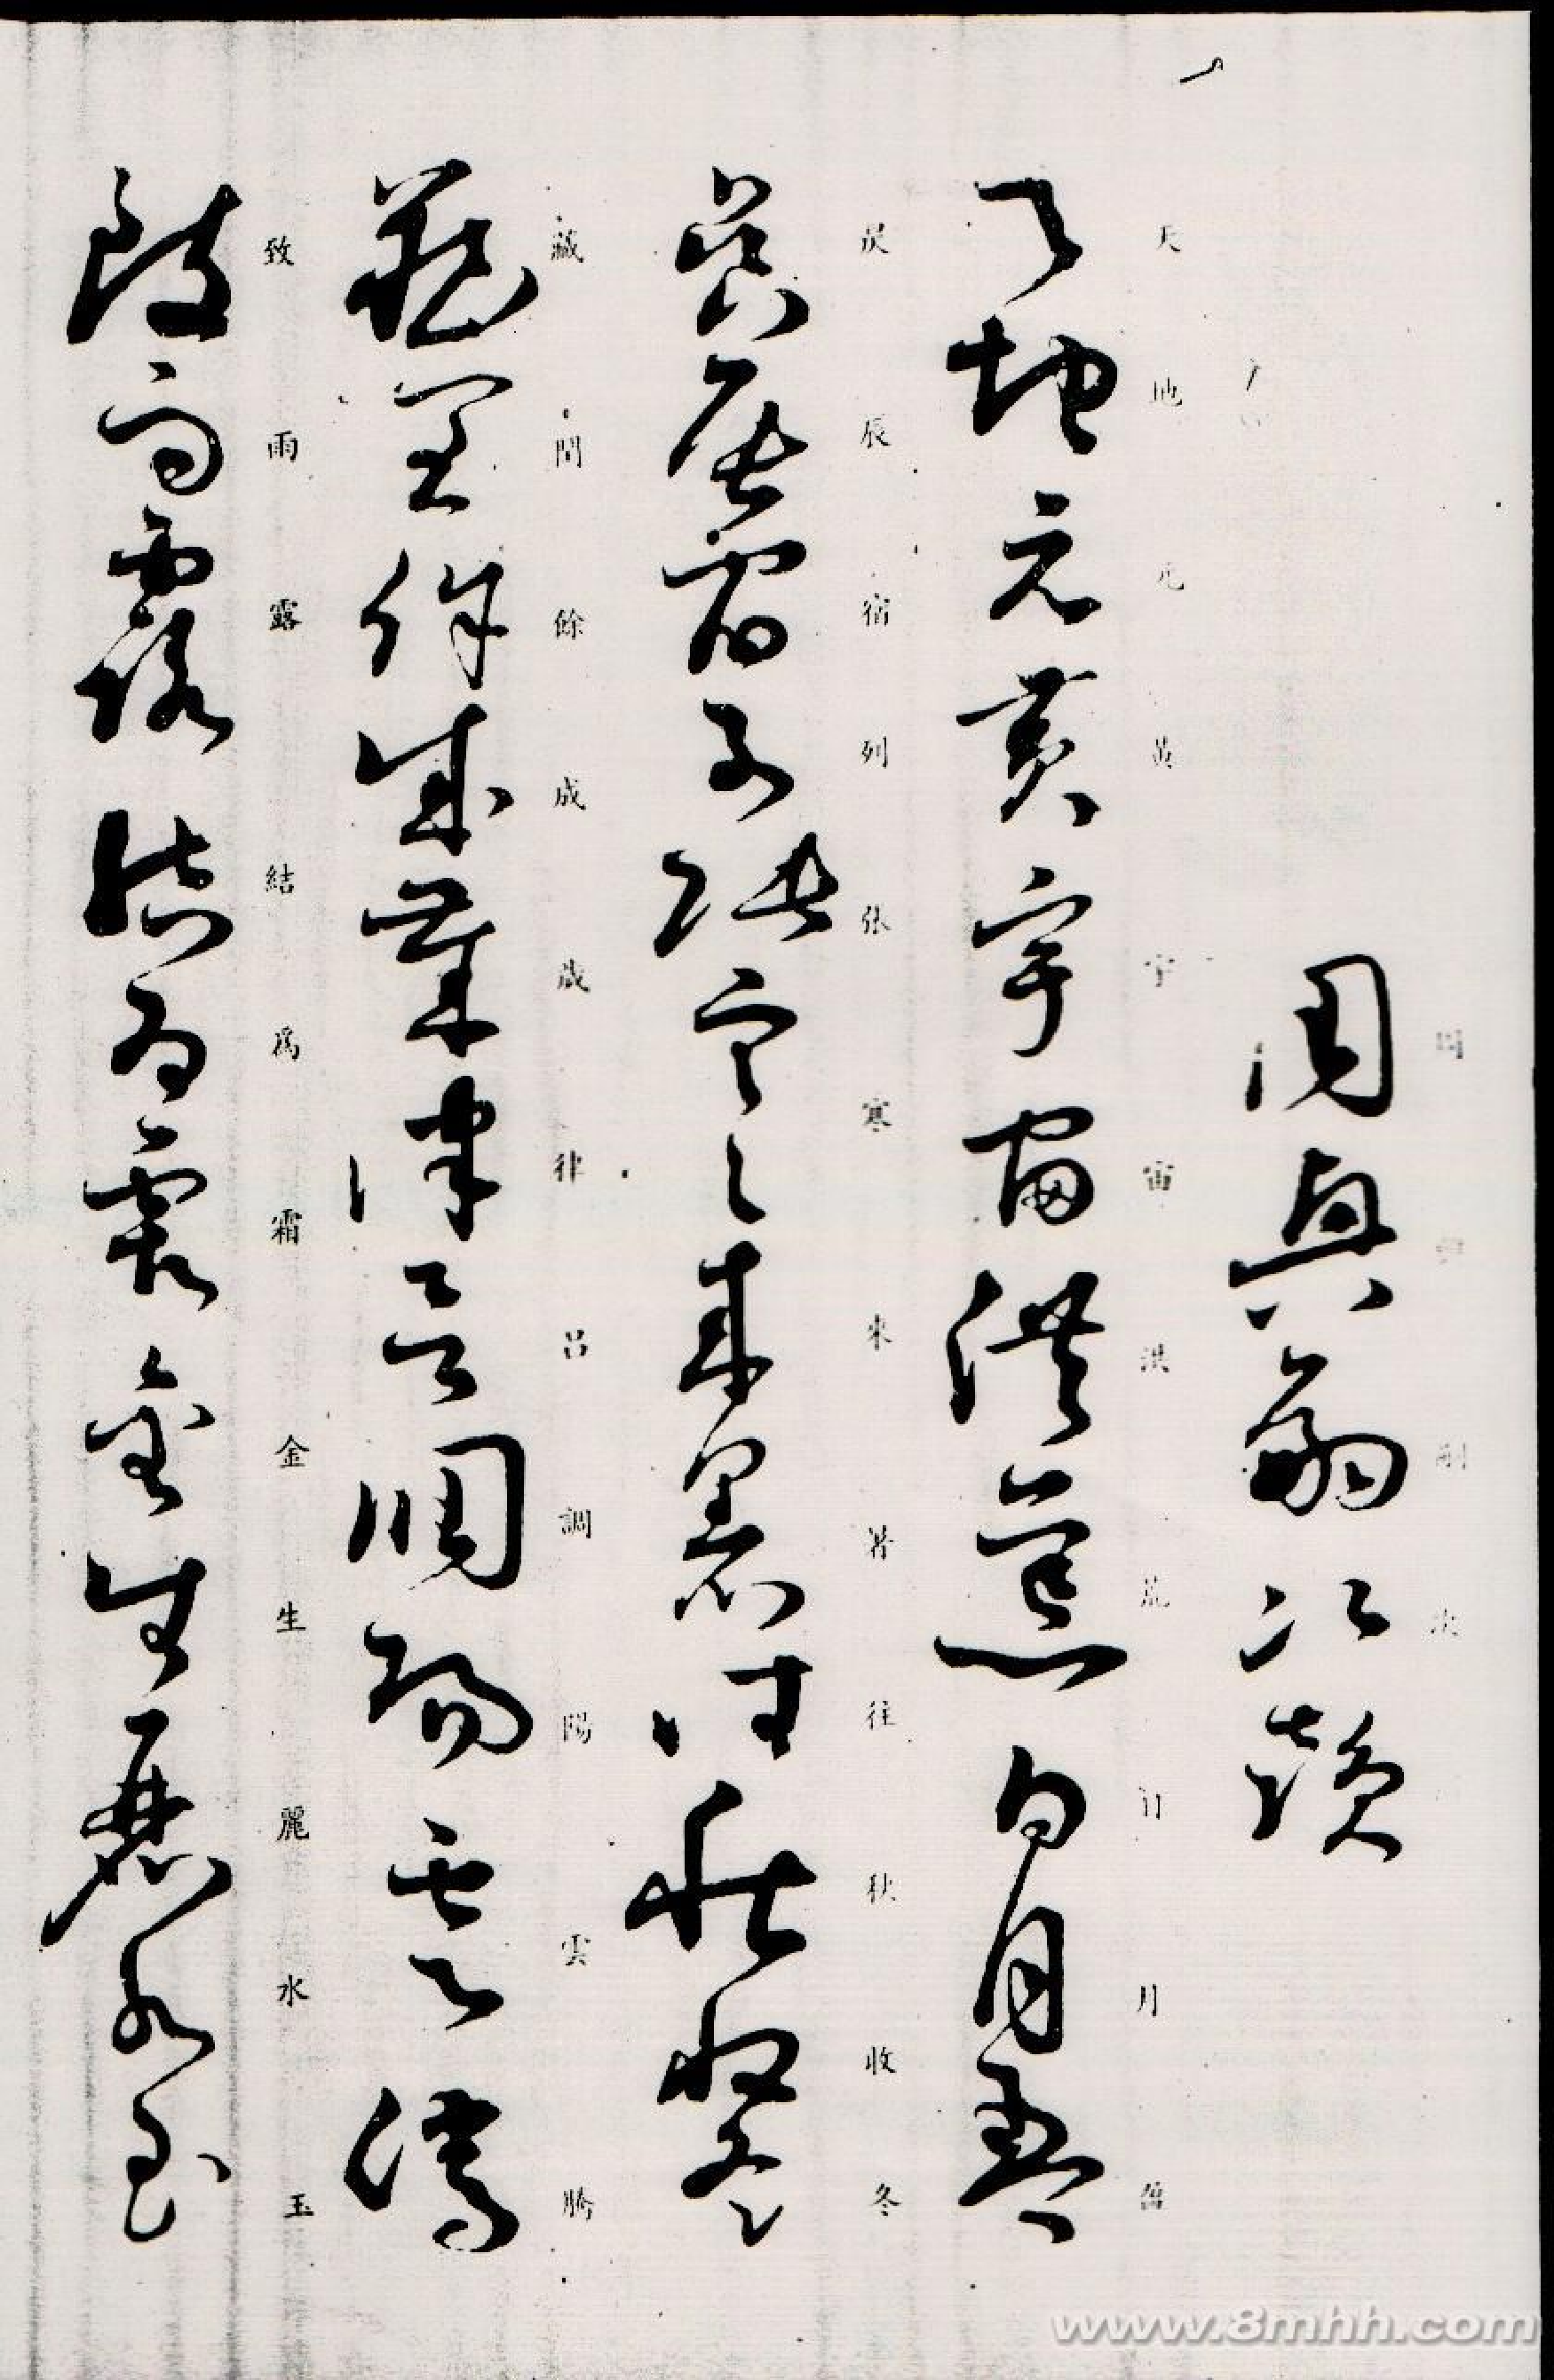 周興嗣次韻
天地元黃宇宙洪荒日月盈
天地元黃宇宙洪荒日月盈
昃辰宿列張寒來暑往秋收冬
昃辰宿列張寒來暑往秋收冬
藏閏餘成歲律呂調陽雲騰
藏閏餘成歲律呂調陽雲騰
致雨露結為霜金生麗水玉
致雨露結爲霜金生麗水玉
www.8mhh.com